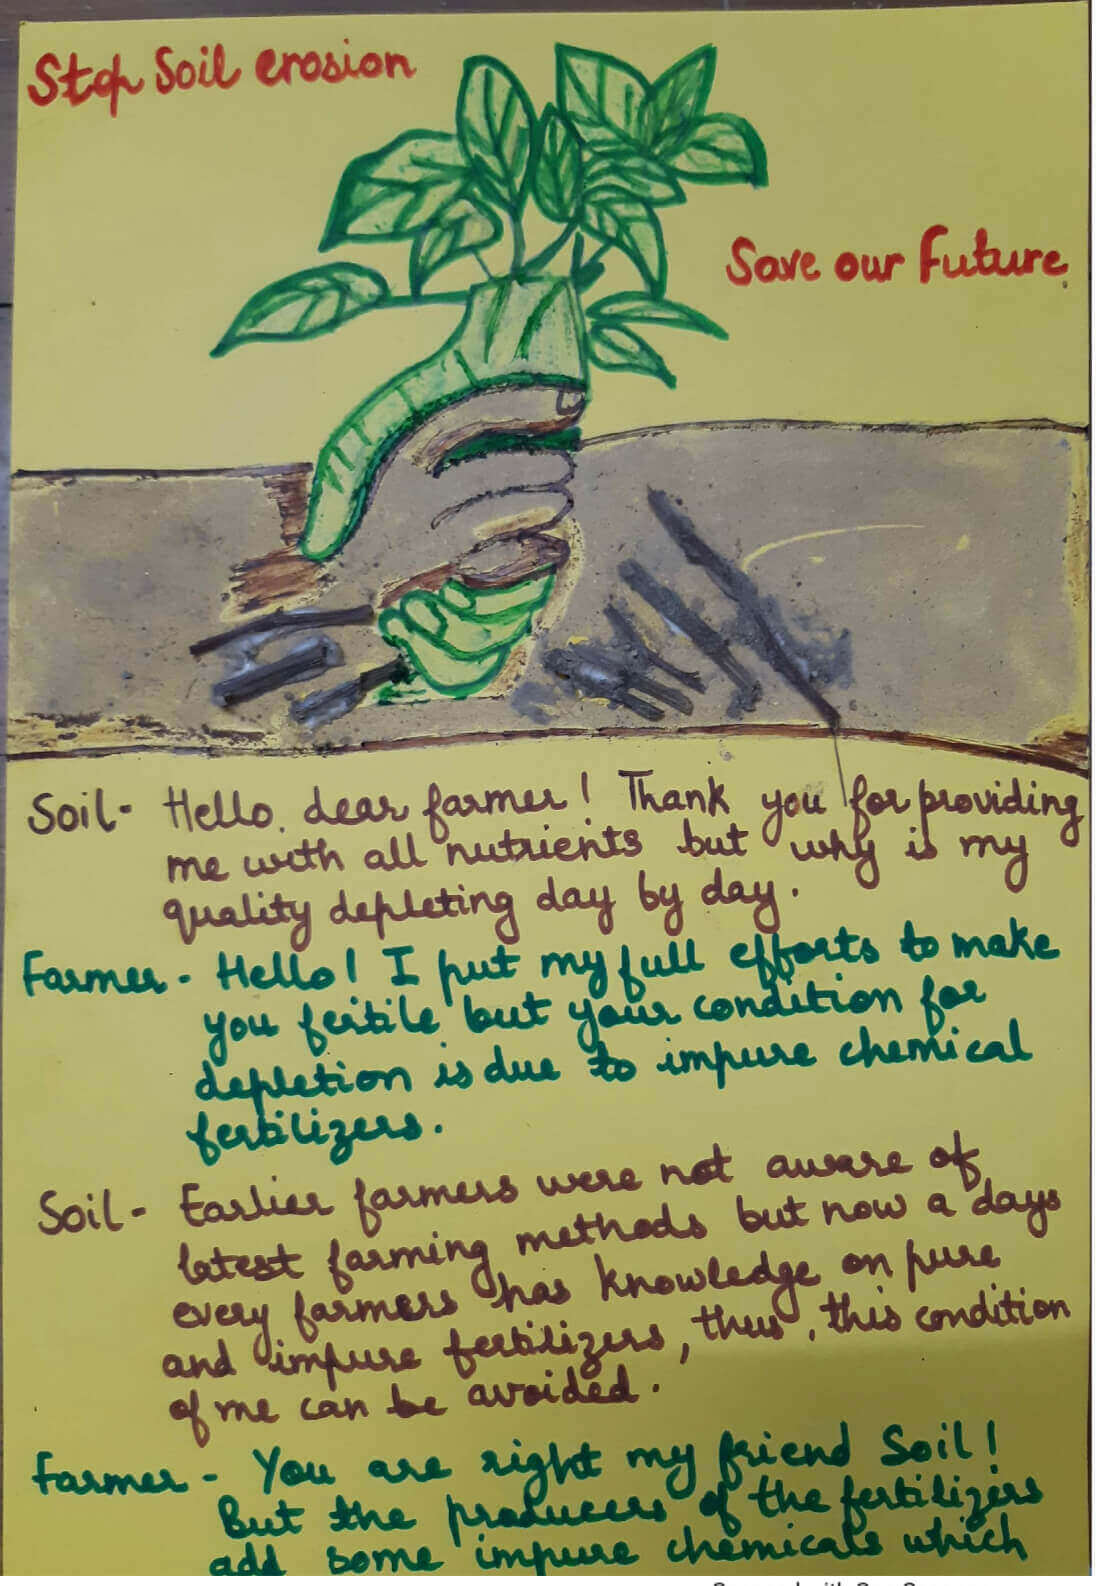 Stop Soil erosion
Save our Future.
Soil - Hello, dear farmer! Thank you for providing
me with all nutrients but why is my
quality depleting day by day.
Farmer - Hello! I put my full efforts to make
you fertile but your condition for
depletion is due to impure chemical
fertilizers.
Soil - Earlier farmers were not aware of
latest farming methods but now a days
every farmers has knowledge on pure
and impure fertilizers, thus, this condition
of me can be avoided.
Farmer - You are right my friend Soil!
But the producers of the fertilizers
add some impure chemicals which